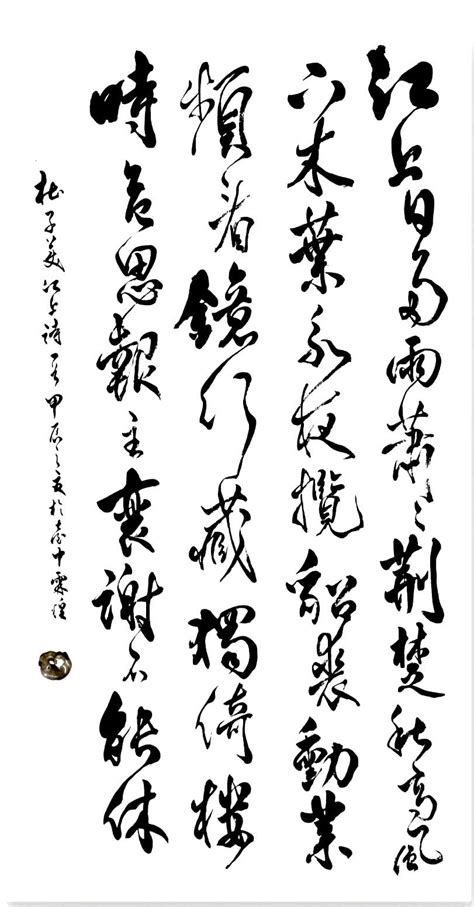 江上日多雨蕭々荊楚秋高風
下木葉永夜攬貂裘勳業
頻看鏡行藏獨倚樓
時危思報主衰謝不能休
杜子美江上詩一首甲辰之夏於臺中霖煌